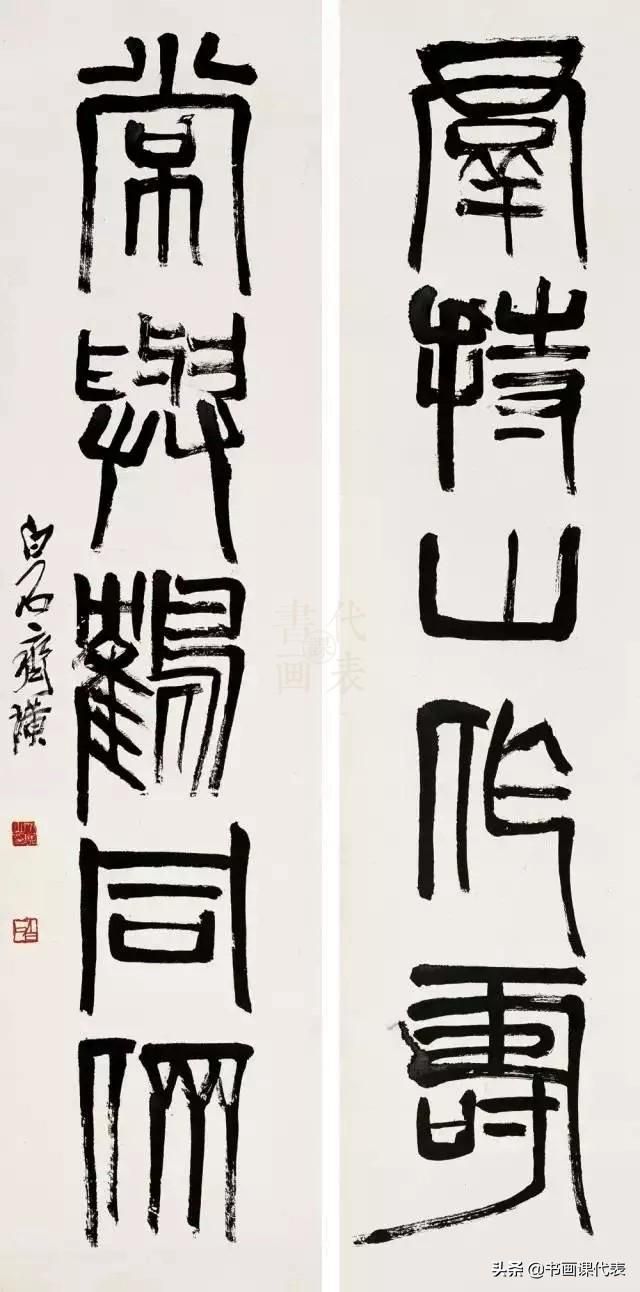 羣持山作壽
常與鶴同
白石齊璜
代表
書画
课
头条 @书画课代表